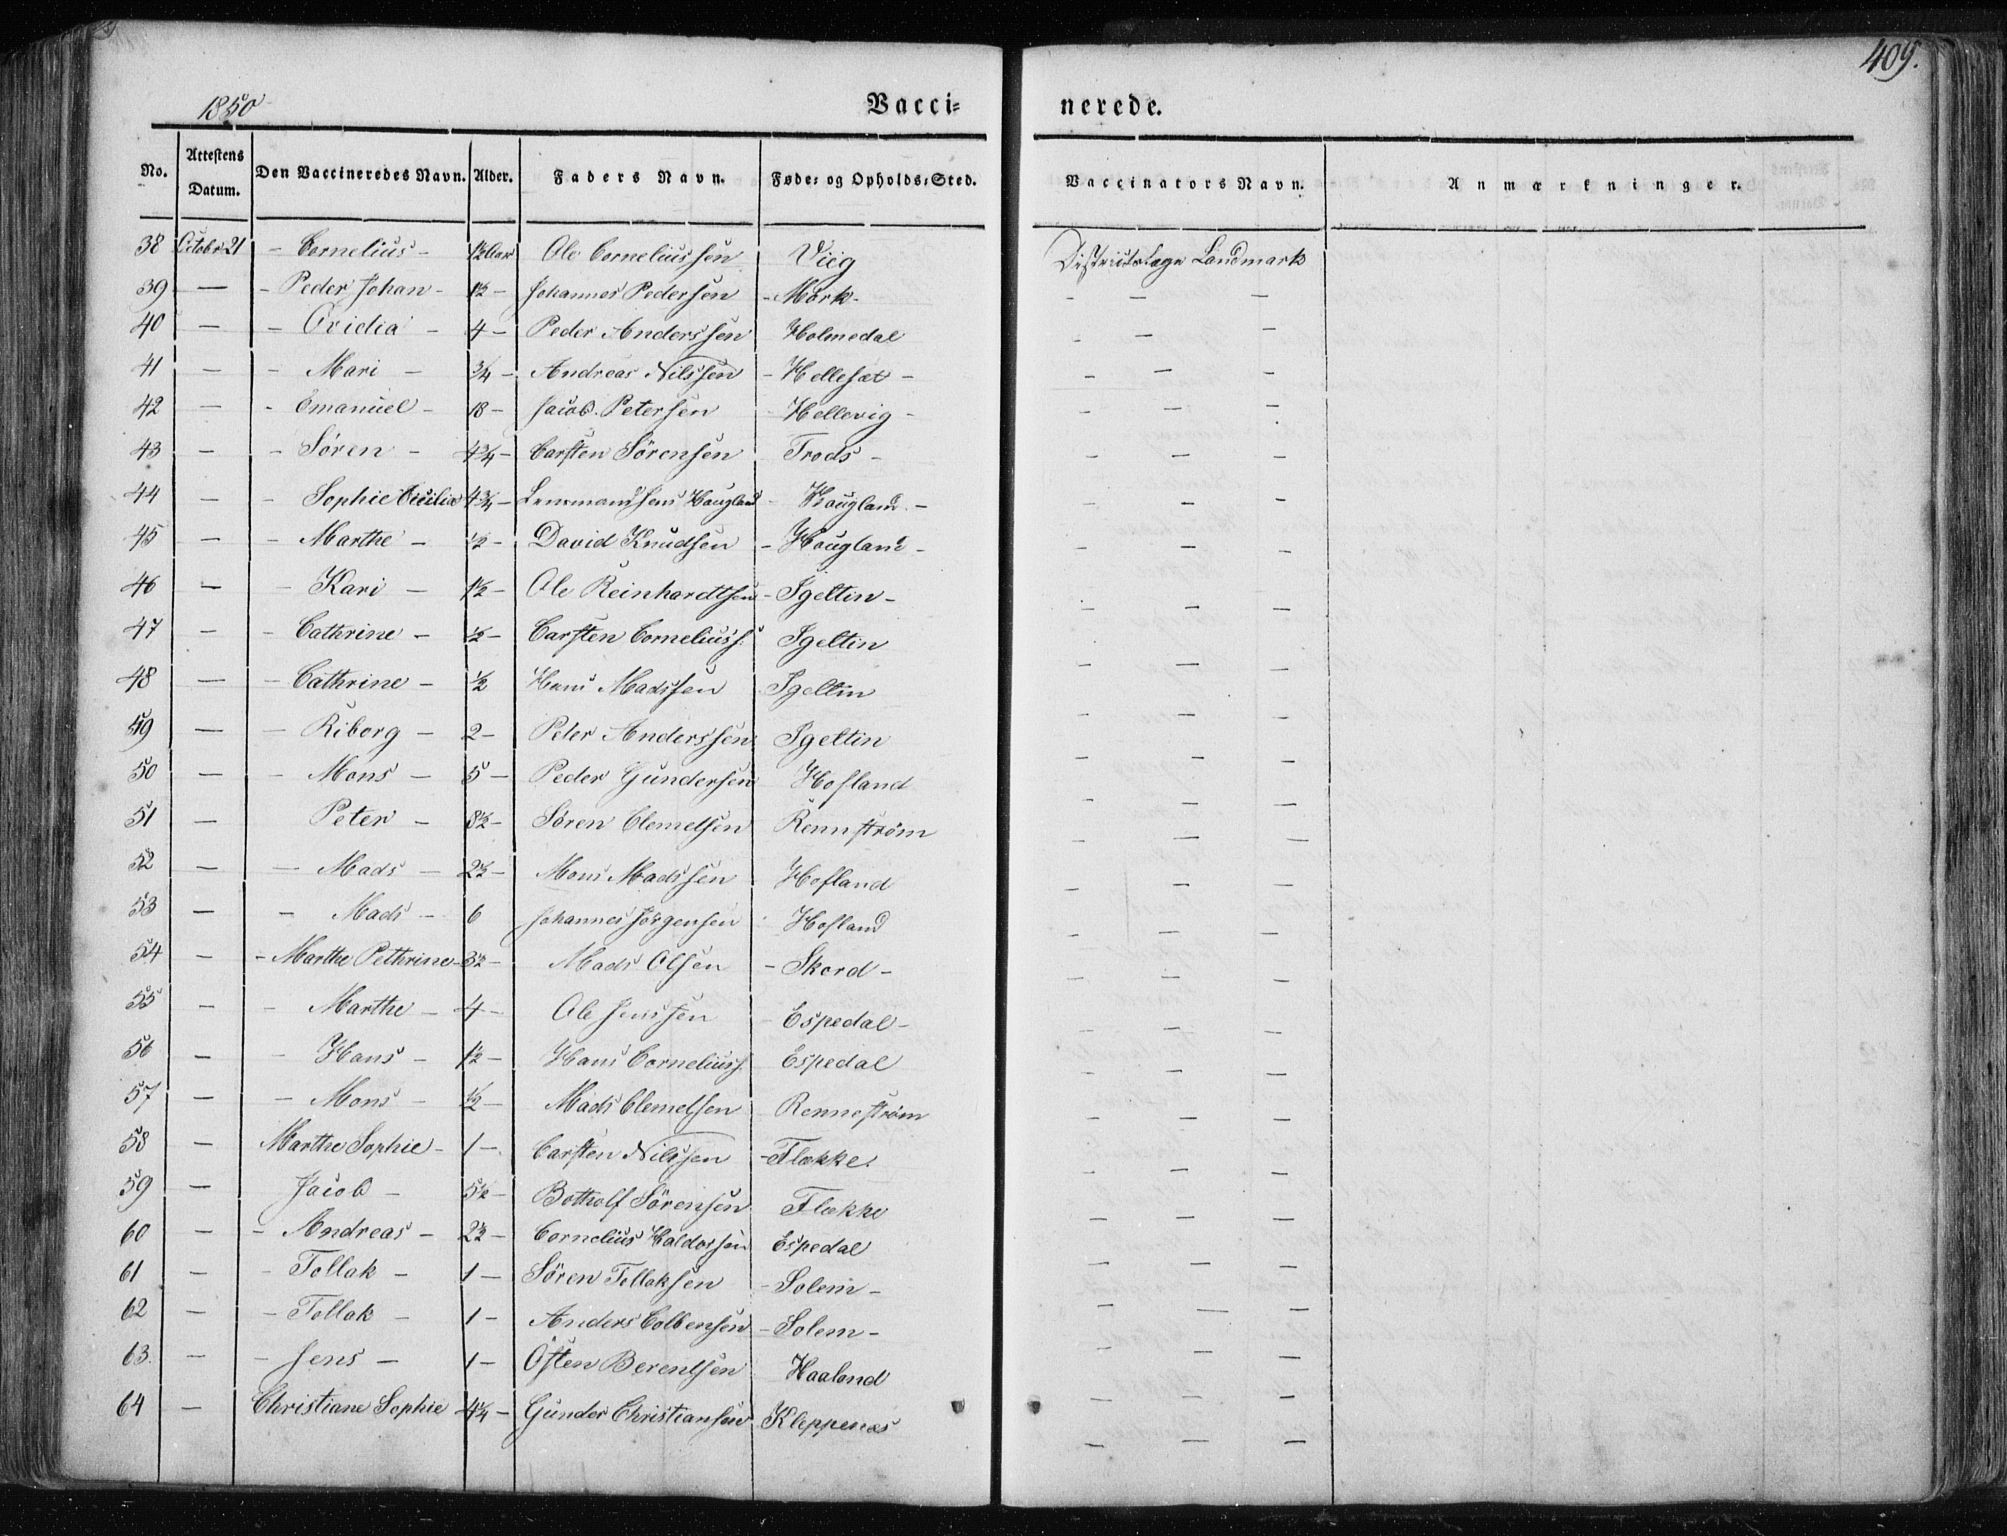 409.
1850
Vacci= nerede.
No. Attestens Datum. Den Vaccineredes Navn. Alder. Faders Navn. Føde= og Opholds=Sted. Vaccinators Navn. Anmærkninger.
38 Octobr 21 - Cornelius - 1½ Aar Ole Corneliussen Viig Districtslæge Landmark
39 — - Peder Johan - 1½ - Johannes Pedersen - Mørk - - — —
40 — - Ovidia - 4 - Peder Anderssen Holmedal - — —
41 — - Mari - ¾ - Andreas Nilssen - Hellesæt - - — —
42 — - Emanuel - 18 - Jacob Petersen - Hellevig - - — —
43 — - Søren - 4¾ - Carsten Sørensen Trods - - — —
44 — - Sophie Cicilia 4¾ - Lensmand Jens Hougland - Hougland - - — —
45 — - Marthe - ½ - David Knudsen - Hougland - - — —
46 — - Kari - 1½ - Ole Reinhardtsen - Igeltin - - — —
47 — - Cathrine - ½ - Carsten Corneliuss. Igeltin - — —
48 — - Cathrine - ½ Hans Madssen Igeltin - — —
49 — - Riborg - 2 - Peter Anderssen Igeltin - — —
50 — - Mons - 5 - Peder Gundersen Hofland - — —
51 — Peter - 8½ - Søren Clemetsen Rennestrøm - — —
52 — - Mads - 2½ - Mons Madssen Hofland - — —
53 — - Mads - 6 Johannes Jørgensen Hofland - — —
54 — - Marthe Pethrine - 3½ - Mads Olsen - Skord - - — —
55 — - Marthe - 4 - Ole Jenssen - Espedal - - — —
56 — - Hans - 1½ - Hans Corneliuss. Espedal - — —
57 — - Mons - ½ - Mads Clemetsen Rennestrøm - — —
58 — Marthe Sophie - 1 - Carsten Nilssen - Flække. - — —
59 — Jacob - 5½ - Botholf Sørensen Flække - — —
60 — - Andreas - 2½ - Cornelius Haldorsen Espedal - — —
61 — - Tollak - 1 - Søren Tollaksen - Solem - - — —
62 — - Tollak - 1 - Anders Colbensen - Solem - - — —
63. — - Jens - 1 - Østen Berentsen Haaland - — —
64 — Christiane Sophie - 4¼ - Gunder Christiansen Kleppenæs - — —